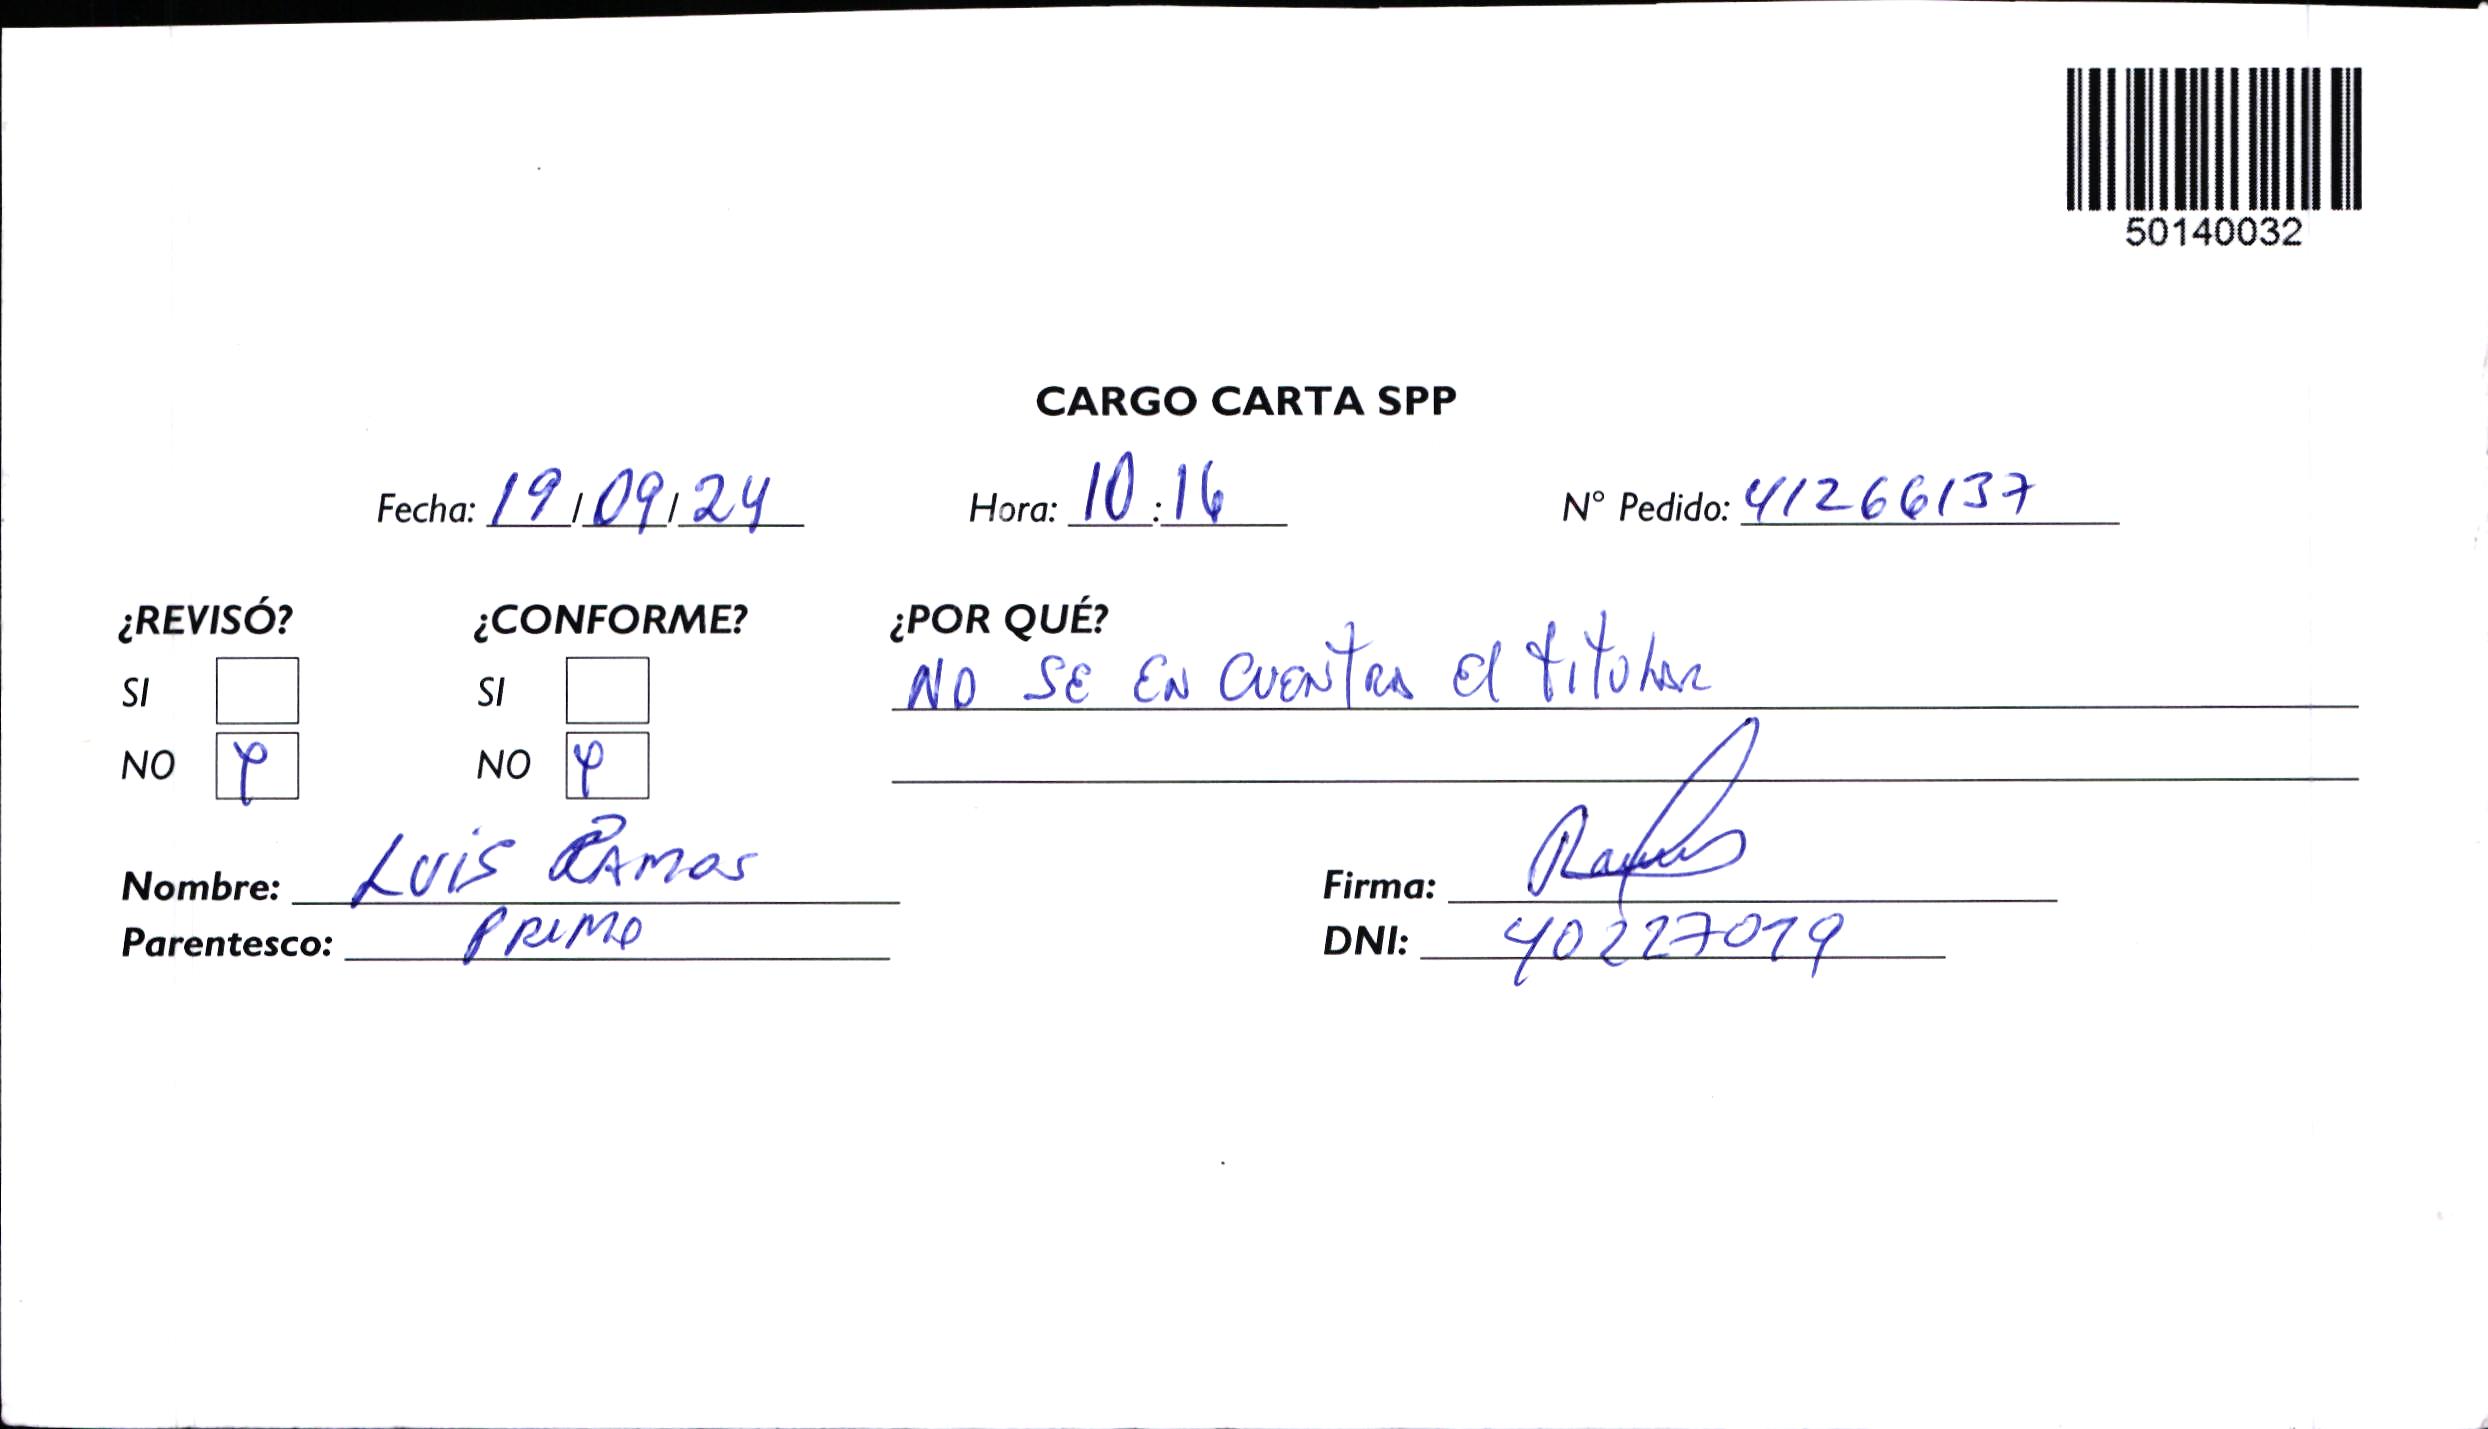 50140032
CARGO CARTA SPP
Fecha: 19/09/24 Hora: 10:16 N° Pedido: 41266137
¿REVISÓ? ¿CONFORME? ¿POR QUÉ?
SI SI NO SE EN CUENTRA El titular
NO NO
Nombre: LUIS RAMOS Firma: Ramos
Parentesco: PRIMO DNI: 40227019